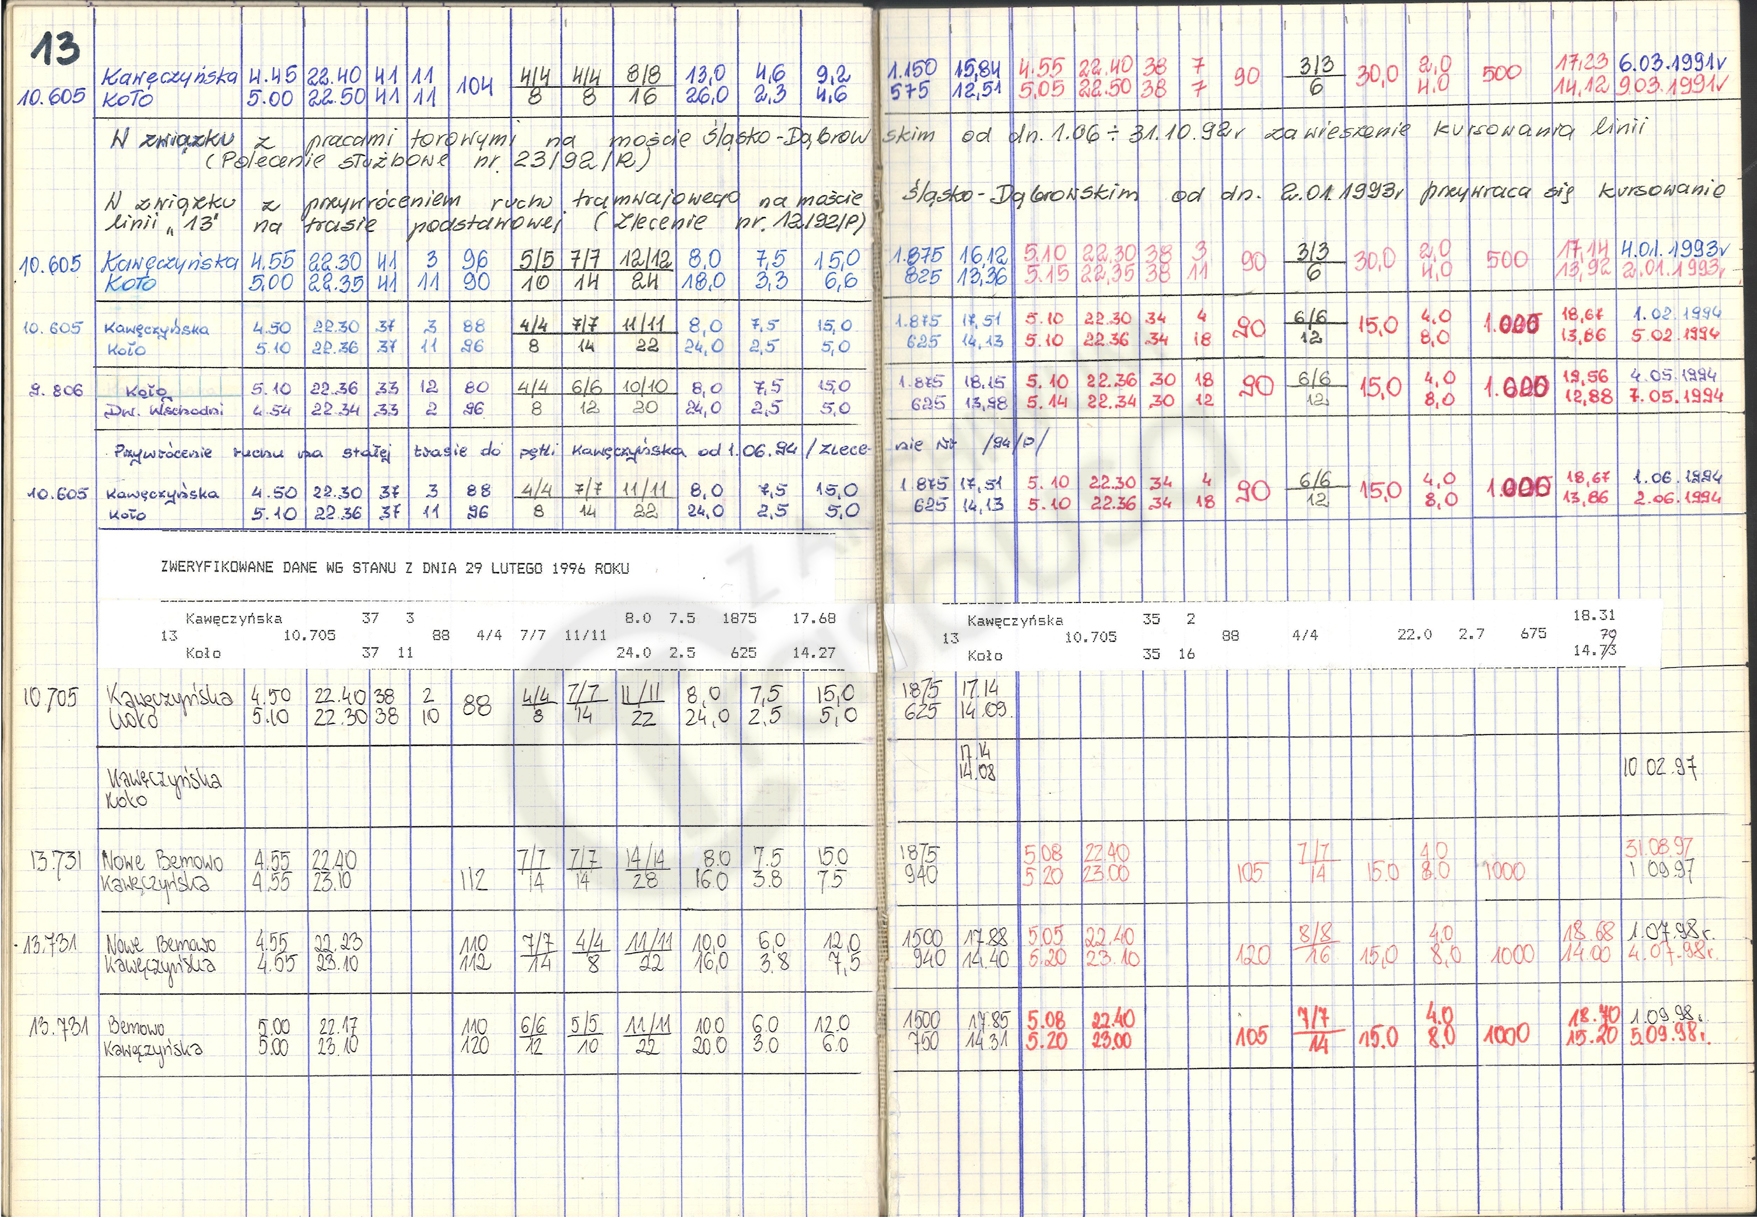 13
Kawęczyńska 4.45 22.40 41 11 104 4/4 4/4 8/8 13,0 4,6 9,2 1.150 15,84 4.55 22.40 38 7 90 3/3 30,0 2,0 500 17,23 6.03.1991r
10.605 Koło 5.00 22.50 41 11 8 8 16 26,0 2,3 4,6 575 12,51 5,05 22.50 38 7 6 4.0 14,12 9.03.1991r
W związku z pracami torowymi na moście Śląsko-Dąbrowskim od dn. 1.06 ÷ 31.10.92r zawieszenie kursowania linii
(Polecenie służbowe nr. 23/92/R)
W związku z przywróceniem ruchu tramwajowego na moście Śląsko-Dąbrowskim od dn. 2.01.1993r przywraca się kursowanie
linii „13" na trasie podstawowej (Zlecenie nr. 12/92/P)
10.605 Kawęczyńska 4.55 22.30 41 3 96 5/5 7/7 12/12 8,0 7,5 15,0 1.875 16,12 5.10 22.30 38 3 90 3/3 30,0 2,0 500 17,14 4.01.1993r
Koło 5,00 22.35 41 11 90 10 14 24 18,0 3,3 6,6 825 13,36 5.15 22,35 38 11 6 4,0 13,92 2.01.1993r
10.605 Kawęczyńska 4.50 22.30 37 3 88 4/4 7/7 11/11 8,0 7,5 15,0 1.875 17,51 5.10 22.30 34 4 90 6/6 15,0 4,0 1.000 18,67 1.02.1994
Koło 5.10 22.36 37 11 96 8 14 22 24,0 2,5 5,0 625 14,13 5.10 22.36 34 18 12 8,0 13,86 5.02.1994
9.806 Koło 5.10 22.36 33 12 80 4/4 6/6 10/10 8,0 7,5 15,0 1.875 18,15 5.10 22.36 30 18 90 6/6 15,0 4,0 1.000 19,56 4.05.1994
Dw. Wschodni 4.54 22.34 33 2 96 8 12 20 24,0 2,5 5,0 625 13,98 5.14 22.34 30 12 12 8,0 12,88 7.05.1994
Przywrócenie ruchu na stałej trasie do pętli Kawęczyńska od 1.06.94 /Zlecenie Nr /94/P/
10.605 Kawęczyńska 4.50 22.30 37 3 88 4/4 7/7 11/11 8,0 7,5 15,0 1.875 17,51 5.10 22.30 34 4 90 6/6 15,0 4,0 1.000 18,67 1.06.1994
Koło 5.10 22.36 37 11 96 8 14 22 24,0 2,5 5,0 625 14,13 5.10 22.36 34 18 12 8,0 13,86 2.06.1994
ZWERYFIKOWANE DANE WG STANU Z DNIA 29 LUTEGO 1996 ROKU
Kawęczyńska 37 3 8.0 7.5 1875 17.68 Kawęczyńska 35 2 18.31
13 10.705 88 4/4 7/7 11/11 13 10.705 88 4/4 22.0 2.7 675 79
Koło 37 11 24.0 2.5 625 14.27 Koło 35 16 14.73
10.705 Kawęczyńska 4.50 22.40 38 2 88 4/4 7/7 11/11 8,0 7,5 15,0 1875 17.14
Koło 5.10 22.30 38 10 8 14 22 24,0 2.5 5,0 625 14.09
Kawęczyńska 17.14
Koło 14.08 10.02.97
13.731 Nowe Bemowo 4.55 22.40 7/7 7/7 14/14 8.0 7.5 15.0 1875 5.08 22.40 7/7 4.0 31.08.97
Kawęczyńska 4.55 23.10 112 14 14 28 16.0 3.8 7.5 940 5.20 23.00 105 14 15.0 8.0 1000 1.09.97
13.731 Nowe Bemowo 4.55 22.23 110 7/7 4/4 11/11 10,0 6,0 12,0 1500 17.88 5.05 22.40 8/8 4,0 18.68 1.07.98r.
Kawęczyńska 4.55 23.10 112 14 8 22 16,0 3.8 7,5 940 14.40 5.20 23.10 120 16 15,0 8,0 1000 14.00 4.07.98r.
13.731 Bemowo 5.00 22.17 110 6/6 5/5 11/11 10.0 6.0 12.0 1500 17.85 5.08 22.40 7/7 4.0 18.70 1.09.98r.
Kawęczyńska 5.00 23.10 120 12 10 22 20.0 3.0 6.0 750 14.31 5.20 23.00 105 14 15.0 8,0 1000 15.20 5.09.98r.